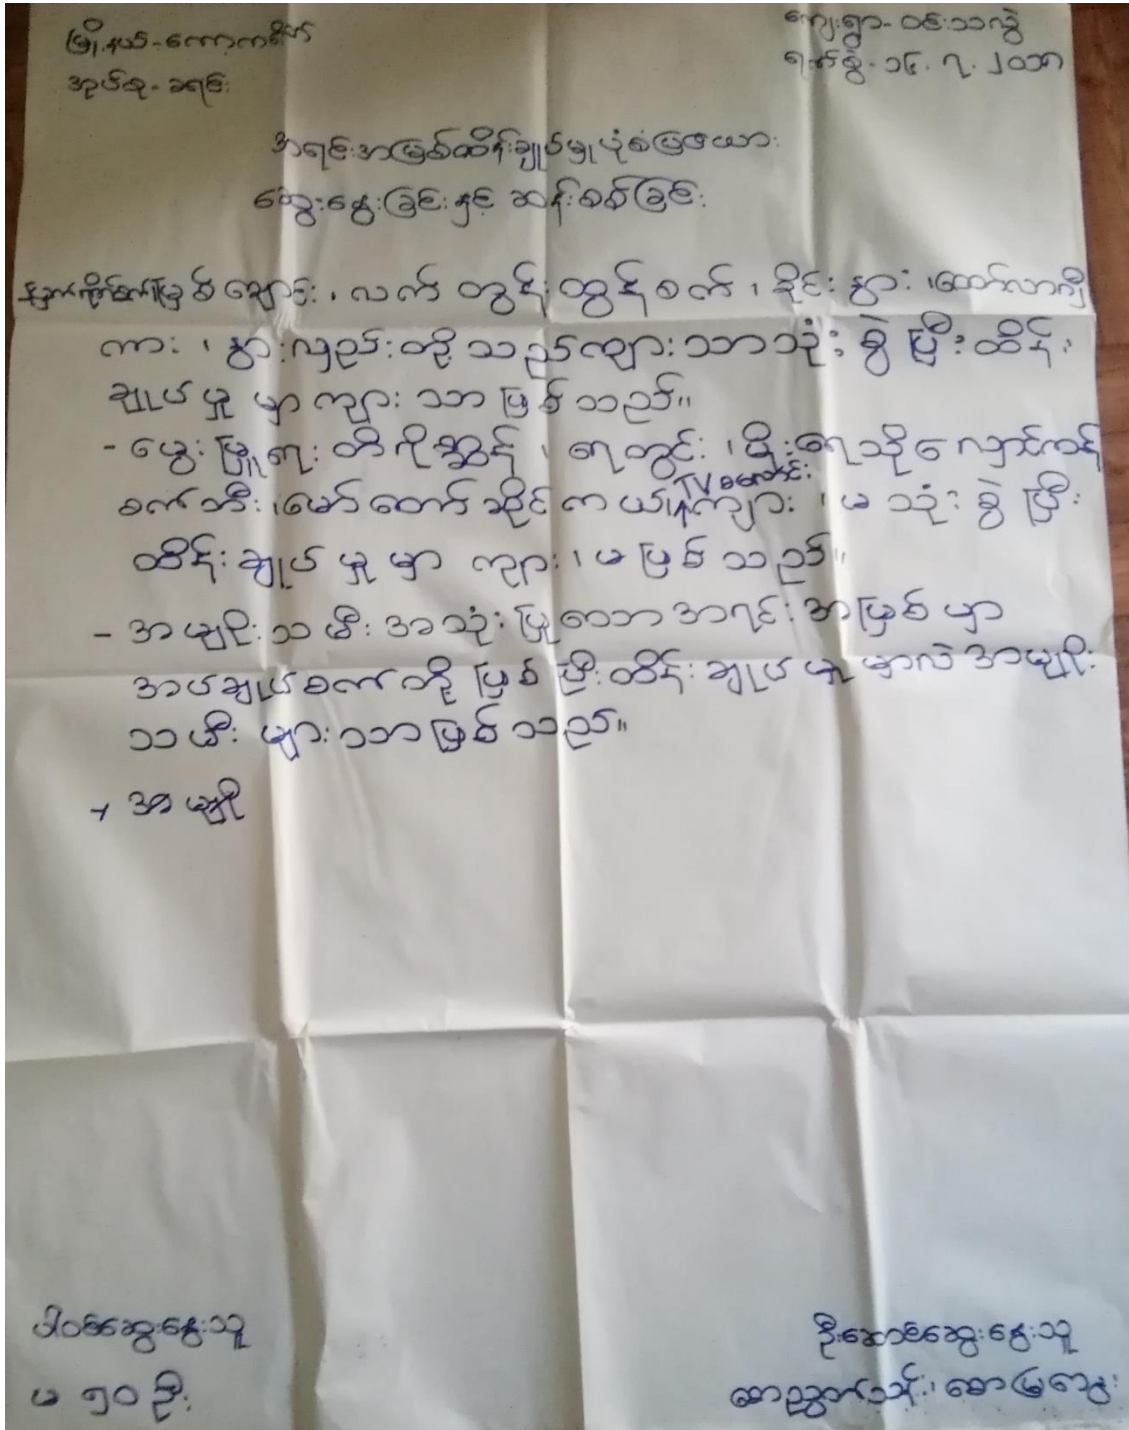 မြို့နယ်-ကော့ကရိတ်
ကျေးရွာ-ဝင်းသလွဲ
အုပ်စု-ခရင်း
ရက်စွဲ-၁၄.၇.၂၀၁၈
အရင်းအမြစ်ထိန်းချုပ်မှုပုံစံပြဇယား
ဆွေးနွေးခြင်းနှင့် ဆန်းစစ်ခြင်း
ချောင်း၊ လက် တွန်းထွန်စက်၊ ခိုင်း နွား ၊ထော်လာဂျီ
ကား ၊ နွားလှည်းတို့ သည်ကျား သာသုံး စွဲ ပြီး ထိန်း
ချုပ် မှု မှာ ကျား သာ ဖြစ် သည်။
- မွေး မြူရေး တိ ၊ ရေတွင်း ၊ မိုး ရေသို လှောင်ကန်
စက်ဘီး ၊မော် တော် ဆိုင် ကယ် TV စလောင်း ကျား ၊ မ သုံး စွဲ ပြီး
ထိန်း ချုပ် မှု မှာ ကျား ၊ မ ဖြစ် သည်။
- အမျိုး သ မီး အသုံး ပြုသော အရင်း အမြစ် မှာ
အပ်ချုပ်စက် တို့ ဖြစ် ပြီး ထိန်း ချုပ် မှု မှာလဲ အမျိုး
သ မီး များ သာ ဖြစ် သည်။
+ အမျို
ပါဝင်ဆွေးနွေးသူ
ဦးဆောင်ဆွေးနွေးသူ
မ ၅၀ ဦး
စောညွှတ်သိန်း၊ စောမြကျေး